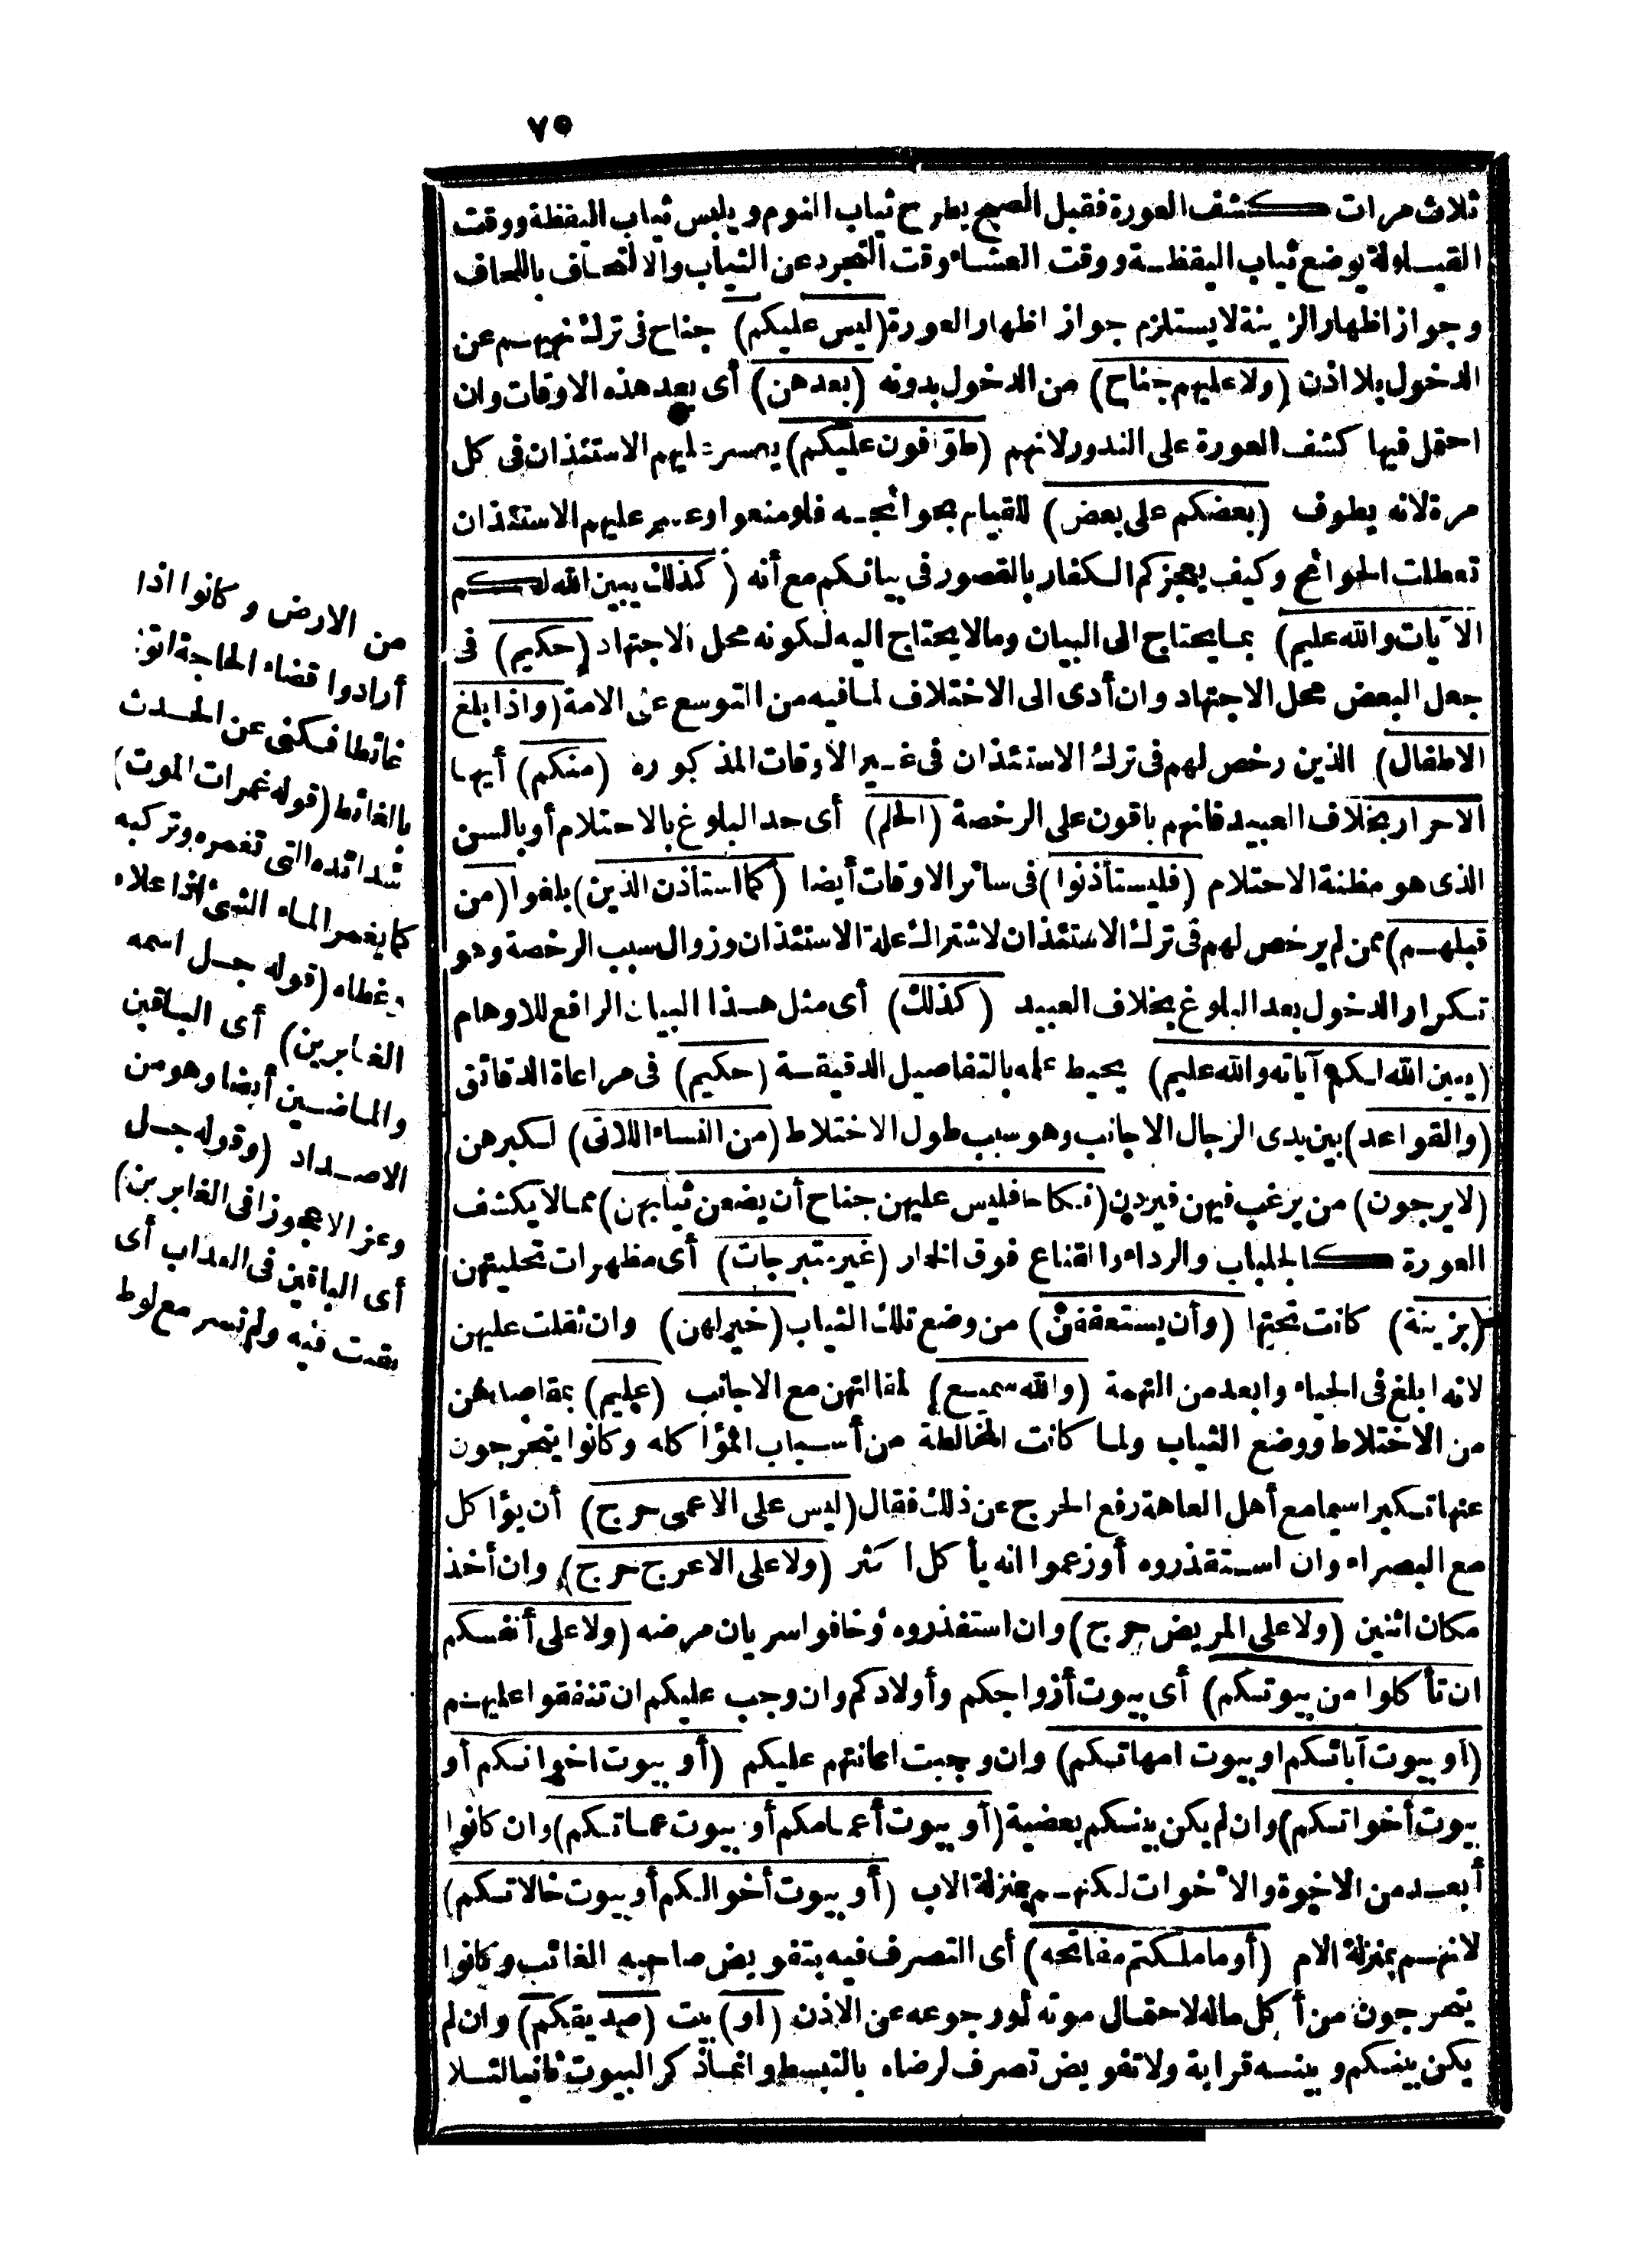 ٧٥
ثلاث مرات كشف العورة فقبل الصبح يطرح ثياب النوم ويلبس ثياب اليقظة ووقت
القيلولة يوضع ثياب اليقظة ووقت العشاء وقت التجرد عن الثياب والالتحاف باللحاف
وجواز اظهار الزينة لا يستلزم جواز اظهار العورة (ليس عليكم) جناح فى ترك نهيهم عن
الدخول بلا اذن (ولا عليهم جناح) من الدخول بدونه (بعدهن) أى بعد هذه الاوقات وان
احتمل فيها كشف العورة على الندور لانهم (طوّافون عليكم) يعسر عليهم الاستئذان فى كل
مرة لانه يطوف (بعضكم على بعض) للقيام بحوائجه فلو منعوا وعسر عليهم الاستئذان
تعطلت الحوائج وكيف يعجزكم الكفار بالقصور فى بيانكم مع أنه (كذلك يبين الله لكم
الآيات والله عليم) بما يحتاج الى البيان وما لا يحتاج اليه لكونه محل الاجتهاد (حكيم) فى
جعل البعض محل الاجتهاد وان أدى الى الاختلاف لما فيه من التوسع على الامة (واذا بلغ
الاطفال) الذين رخص لهم فى ترك الاستئذان فى غير الاوقات المذكورة (منكم) أيها
الاحرار بخلاف العبيد فانهم باقون على الرخصة (الحلم) أى حد البلوغ بالاحتلام أو بالسن
الذى هو مظنة الاحتلام (فليستأذنوا) فى سائر الاوقات أيضا (كما استأذن الذين) بلغوا (من
قبلهم) ممن لم يرخص لهم فى ترك الاستئذان لاشتراك علة الاستئذان وزوال سبب الرخصة وهو
تكرار الدخول بعد البلوغ بخلاف العبيد (كذلك) أى مثل هذا البيان الرافع للاوهام
(يبين الله لكم آياته والله عليم) يحيط علمه بالتفاصيل الدقيقة (حكيم) فى مراعاة الدقائق
(والقواعد) بين يدى الرجال الاجانب وهو سبب طول الاختلاط (من النساء اللاتى) لكبرهن
(لا يرجون) من يرغب فيهن فيردن (نكاحا فليس عليهن جناح أن يضعن ثيابهن) مما لا يكشف
العورة كالجلباب والرداء والقناع فوق الخمار (غير متبرجات) أى مظهرات تحليتهن
(بزينة) كانت تحتها (وأن يستعففن) من وضع تلك الثياب (خير لهن) وان ثقلت عليهن
لانه ابلغ فى الحياء وابعد من التهمة (والله سميع) لمقالتهن مع الاجانب (عليم) بمقاصدهن
من الاختلاط ووضع الثياب ولما كانت المخالطة من أسباب المؤاكله وكانوا يتحرجون
عنها تكبرا سيما مع أهل العاهة رفع الحرج عن ذلك فقال (ليس على الاعمى حرج) أن يؤاكل
مع البصراء وان استقذروه أوزعموا انه يأكل اكثر (ولا على الاعرج حرج) وان أخذ
مكان اثنين (ولا على المريض حرج) وان استقذروه وخافوا سريان مرضه (ولا على أنفسكم
ان تأكلوا من بيوتكم) أى بيوت أزواجكم وأولادكم وان وجب عليكم ان تنفقوا عليهم
(أو بيوت آبائكم او بيوت امهاتكم) وان وجبت اعانتهم عليكم (أو بيوت اخوانكم أو
بيوت أخواتكم) وان لم يكن بينكم بعضية (أو بيوت أعمامكم أو بيوت عماتكم) وان كانوا
أبعد من الاخوة والاخوات لكنهم بمنزلة الاب (أو بيوت أخوالكم أو بيوت خالاتكم)
لانهم بمنزلة الام (أو ما ملكتم مفاتحه) أى التصرف فيه بتفويض صاحبه الغائب وكانوا
يتحرجون من أكل ماله لاحتمال موته أو رجوعه عن الاذن (او) بيت (صديقكم) وان لم
يكن بينكم وبينه قرابة ولا تفويض تصرف لرضاه بالتبسط وانما ذكر البيوت ثانيا لئلا
من الارض وكانوا اذا
أرادوا قضاء الحاجة اتوا
غائطا فكنى عن الحدث
بالغائط (قوله غمرات الموت)
شدائده التى تغمره وتركبه
كما يغمر الماء الشئ اذا علاه
وغطاه (قوله جل اسمه
الغابرين) أى الباقين
والماضين أيضا وهو من
الاضداد (وقوله جل
وعز الا عجوزا فى الغابرين)
أى الباقين فى العذاب أى
بقيت فيه ولم تسر مع لوط